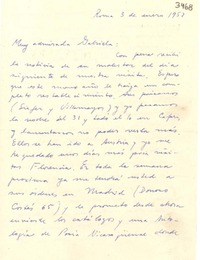 3468
Roma 3 de enero 1951
Muy admirada Gabriela:
Con pena recibí
la noticia de su malestar del día
siguiente de nuestra visita. Espero
que este nuevo año le traiga un com-
pleto restablecimiento. Los pasamos
( y Villamayor) y yo pasamos
la noche del 31 y todo el 1o en Capri
y lamentamos no poder verla más
Ellos se han ido a Austria y yo me
he quedado unos días más para visi-
tar Florencia. En toda la semana
próxima ya me tendrá usted a
sus órdenes en Madrid (Donoso
Cortés 65) y le prometo desde ahora
enviarle los catálogos y una Anto-
logía de Poesía Nicaragüense donde